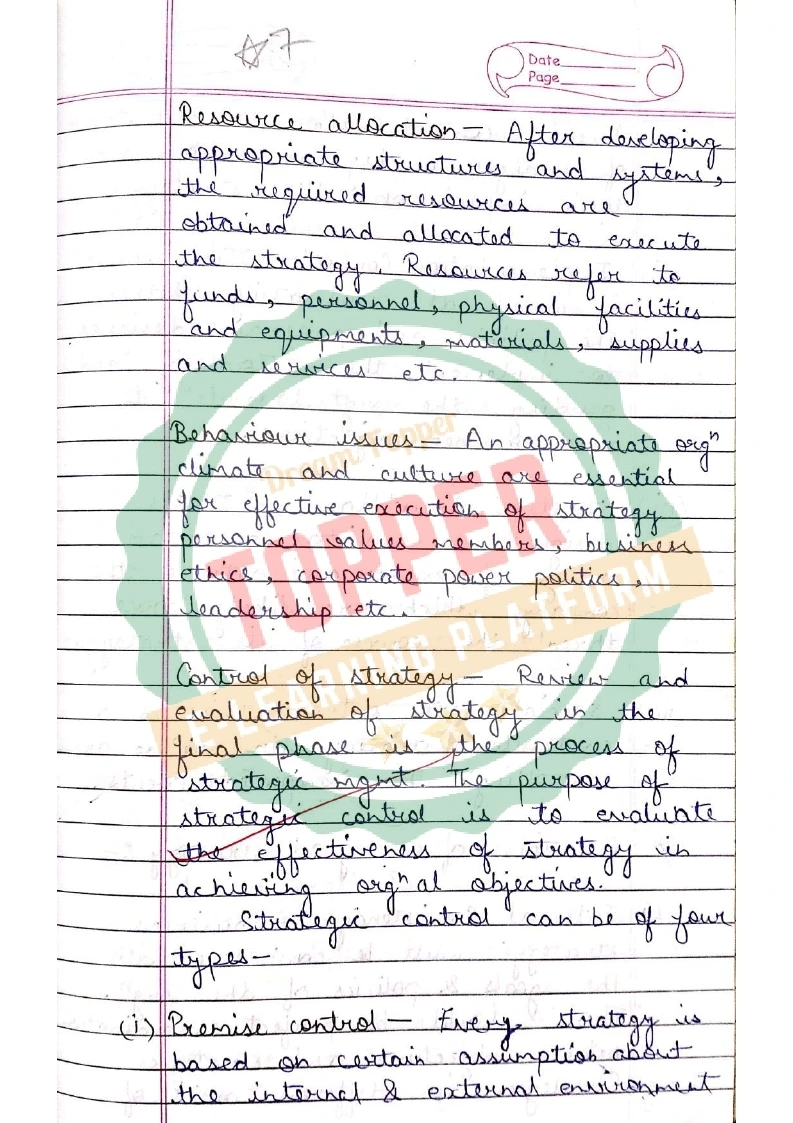 ☆ 7
Date
Page
Resource allocation – After developing
appropriate structures and systems,
the required resources are
obtained and allocated to execute
the strategy. Resources refer to
funds, personnel, physical facilities
and equipments, materials, supplies
and services etc.
Behaviour issues – An appropriate orgⁿ
climate and culture are essential
for effective execution of strategy
personnel values members, business
ethics, corporate power politics,
leadership etc.
Control of strategy – Review and
evaluation of strategy in the
final phase is the process of
strategic mgmt. The purpose of
strategic control is to evaluate
the effectiveness of strategy in
achieving orgⁿal objectives.
Strategic control can be of four
types –
(i) Premise control – Every strategy is
based on certain assumption about
the internal & external environment
Dream Topper
TOPPER
E-LEARNING PLATFORM